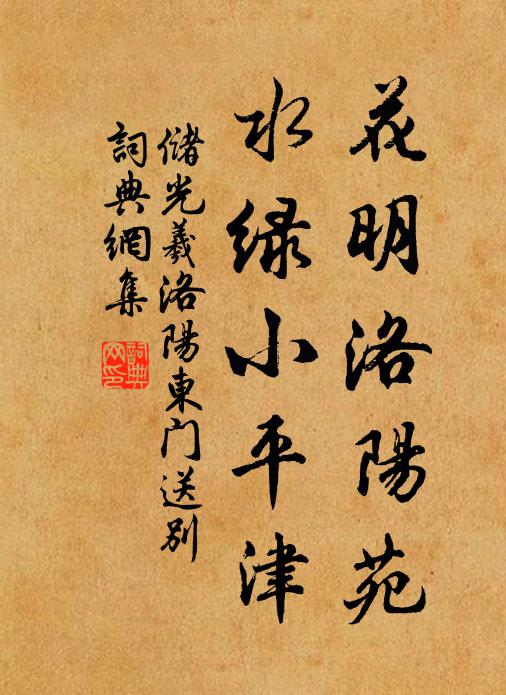 花明洛陽苑
水绿小平津
儲光羲洛陽東门送别
詞典網集
詞典
网印